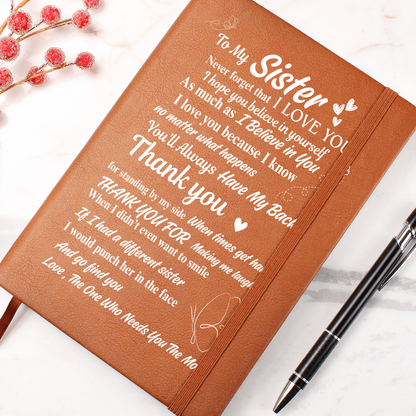 To My Sister
Never forget that I LOVE YOU
I hope you believe in yourself
As much as I Believe in You
I love you because I know
no matter what happens
You'll Always Have My Back
Thank you
for standing by my side When times get har
THANK YOU FOR Making me laugh
When I didn't even want to smile
If I had a different sister
I would punch her in the face
And go find you
Love, The One Who Needs You The Mo